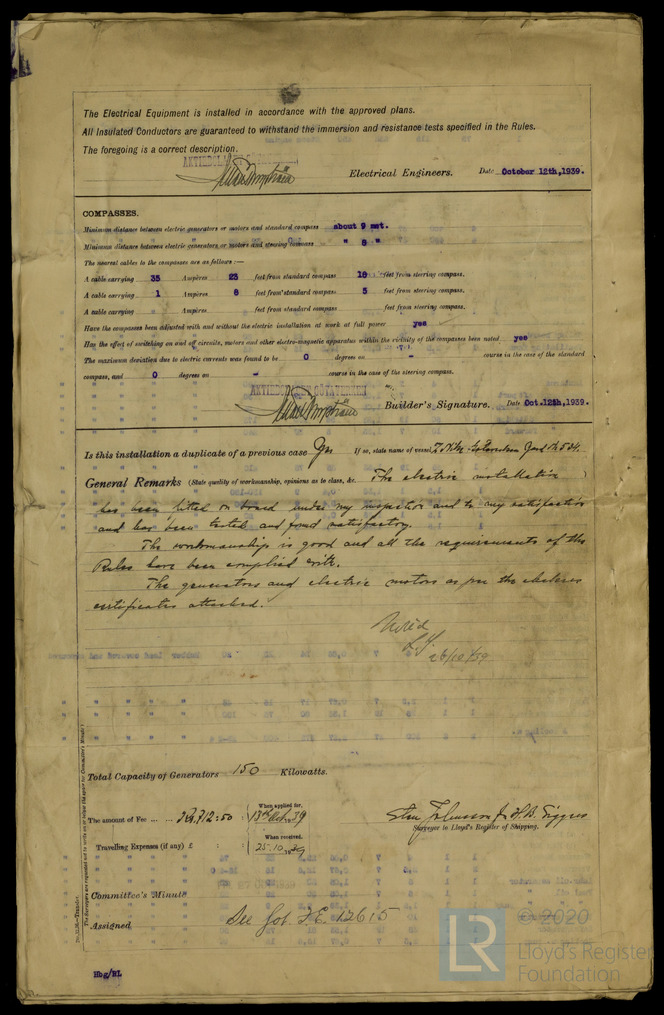 The Electrical Equipment is installed in accordance with the approved plans.
All Insulated Conductors are guaranteed to withstand the immersion and resistance tests specified in the Rules.
The foregoing is a correct description.
Electrical Engineers. Date October 12th, 1939.
COMPASSES.
Minimum distance between electric generators or motors and standard compass about 9 met.
Minimum distance between electric generators or motors and steering compass " 8 "
The nearest cables to the compasses are as follows:—
A cable carrying 35 Ampères 23 feet from standard compass 18 feet from steering compass.
A cable carrying 1 Ampères 8 feet from standard compass 5 feet from steering compass.
A cable carrying Ampères feet from standard compass feet from steering compass.
Have the compasses been adjusted with and without the electric installation at work at full power yes
Has the effect of switching on and off circuits, motors and other electro-magnetic apparatus within the vicinity of the compasses been noted yes
The maximum deviation due to electric currents was found to be 0 degrees on - course in the case of the standard
compass, and 0 degrees on - course in the case of the steering compass.
Builder's Signature. Date Oct. 12th, 1939.
Is this installation a duplicate of a previous case Yes If so, state name of vessel
General Remarks (State quality of workmanship, opinions as to class, &c. The electric installation )
has been fitted on board under my inspection and to my satisfaction
and has been tested and found satisfactory.
The workmanship is good and all the requirements of the
Rules have been complied with.
The generators and electric motors as per the
certificates attached.
Noted
26/10/39
Total Capacity of Generators 150 Kilowatts.
The amount of Fee ... ... Kr. 712:50 When applied for, 13th Oct. 1939
Travelling Expenses (if any) £ : : When received, 25.10.1939
Surveyor to Lloyd's Register of Shipping.
Committee's Minute
Assigned See Got. F.E. 12615
Hbg/NL
LR © 2020
Lloyd's Register
Foundation